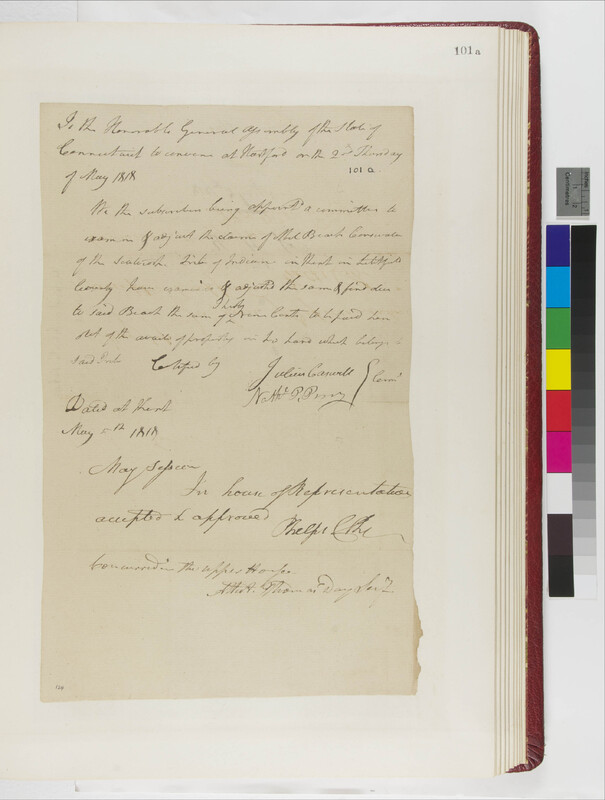 101a
To the Honorable General Assembly of the State of
Connecticut to convene at Hartford on the 2nd Thursday
of May 1818
101 a
We the subscribers being appointd a committee to
examin & adjust the claims of Abel Beach Conservator
of the Scaticook Tribe of Indians in Kent in Litchfield
County have examind & adjusted the same & find due
to said Beach the sum of Thirty Nine Cents to be paid him
out of the avails of property in his hands which belongs to
said Tribe Certified by
Julius Caswell
Nathl P. Perry
Comt
Dated at Kent
May 5th 1818
May Session
In house of Representatives
accepted & approved
Phelps Clk
Concurred in the upper House
Attest. Thomas Day Secy